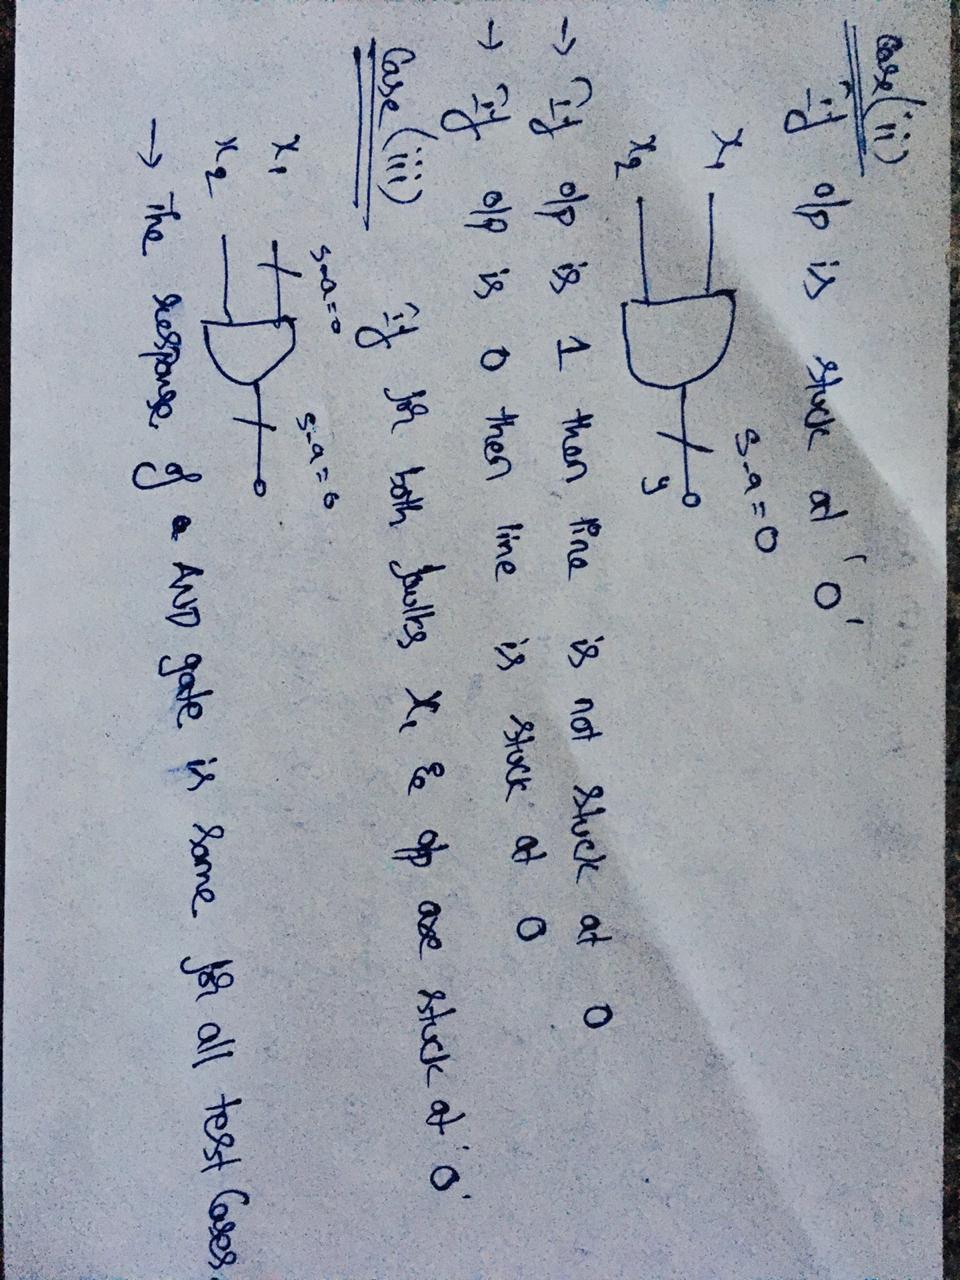 Case (ii)
If o/p is stuck at '0'
s-a=0
x1
x2
y
→ If o/p is 1 then line is not stuck at 0
→ If o/p is 0 then line is stuck at 0
Case (iii) If for both faults x1 & o/p are stuck at '0'
s-a=0
s-a=0
x1
x2
→ The response of a AND gate is same for all test Cases.